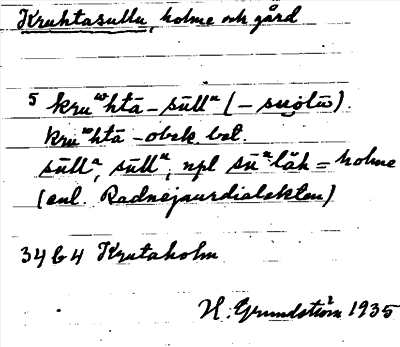 Kruhtasullu, holme och gård
5 kruʷhtā-sūllᵃ (-suolū)
kruʷhtā - obek. bet.
sūllᵃ, sūllᵃ, npl sūᵃlăh = holme
(enl. Radnejaurdialekten)
34 b 4 Krutaholm
H. Grundström 1935